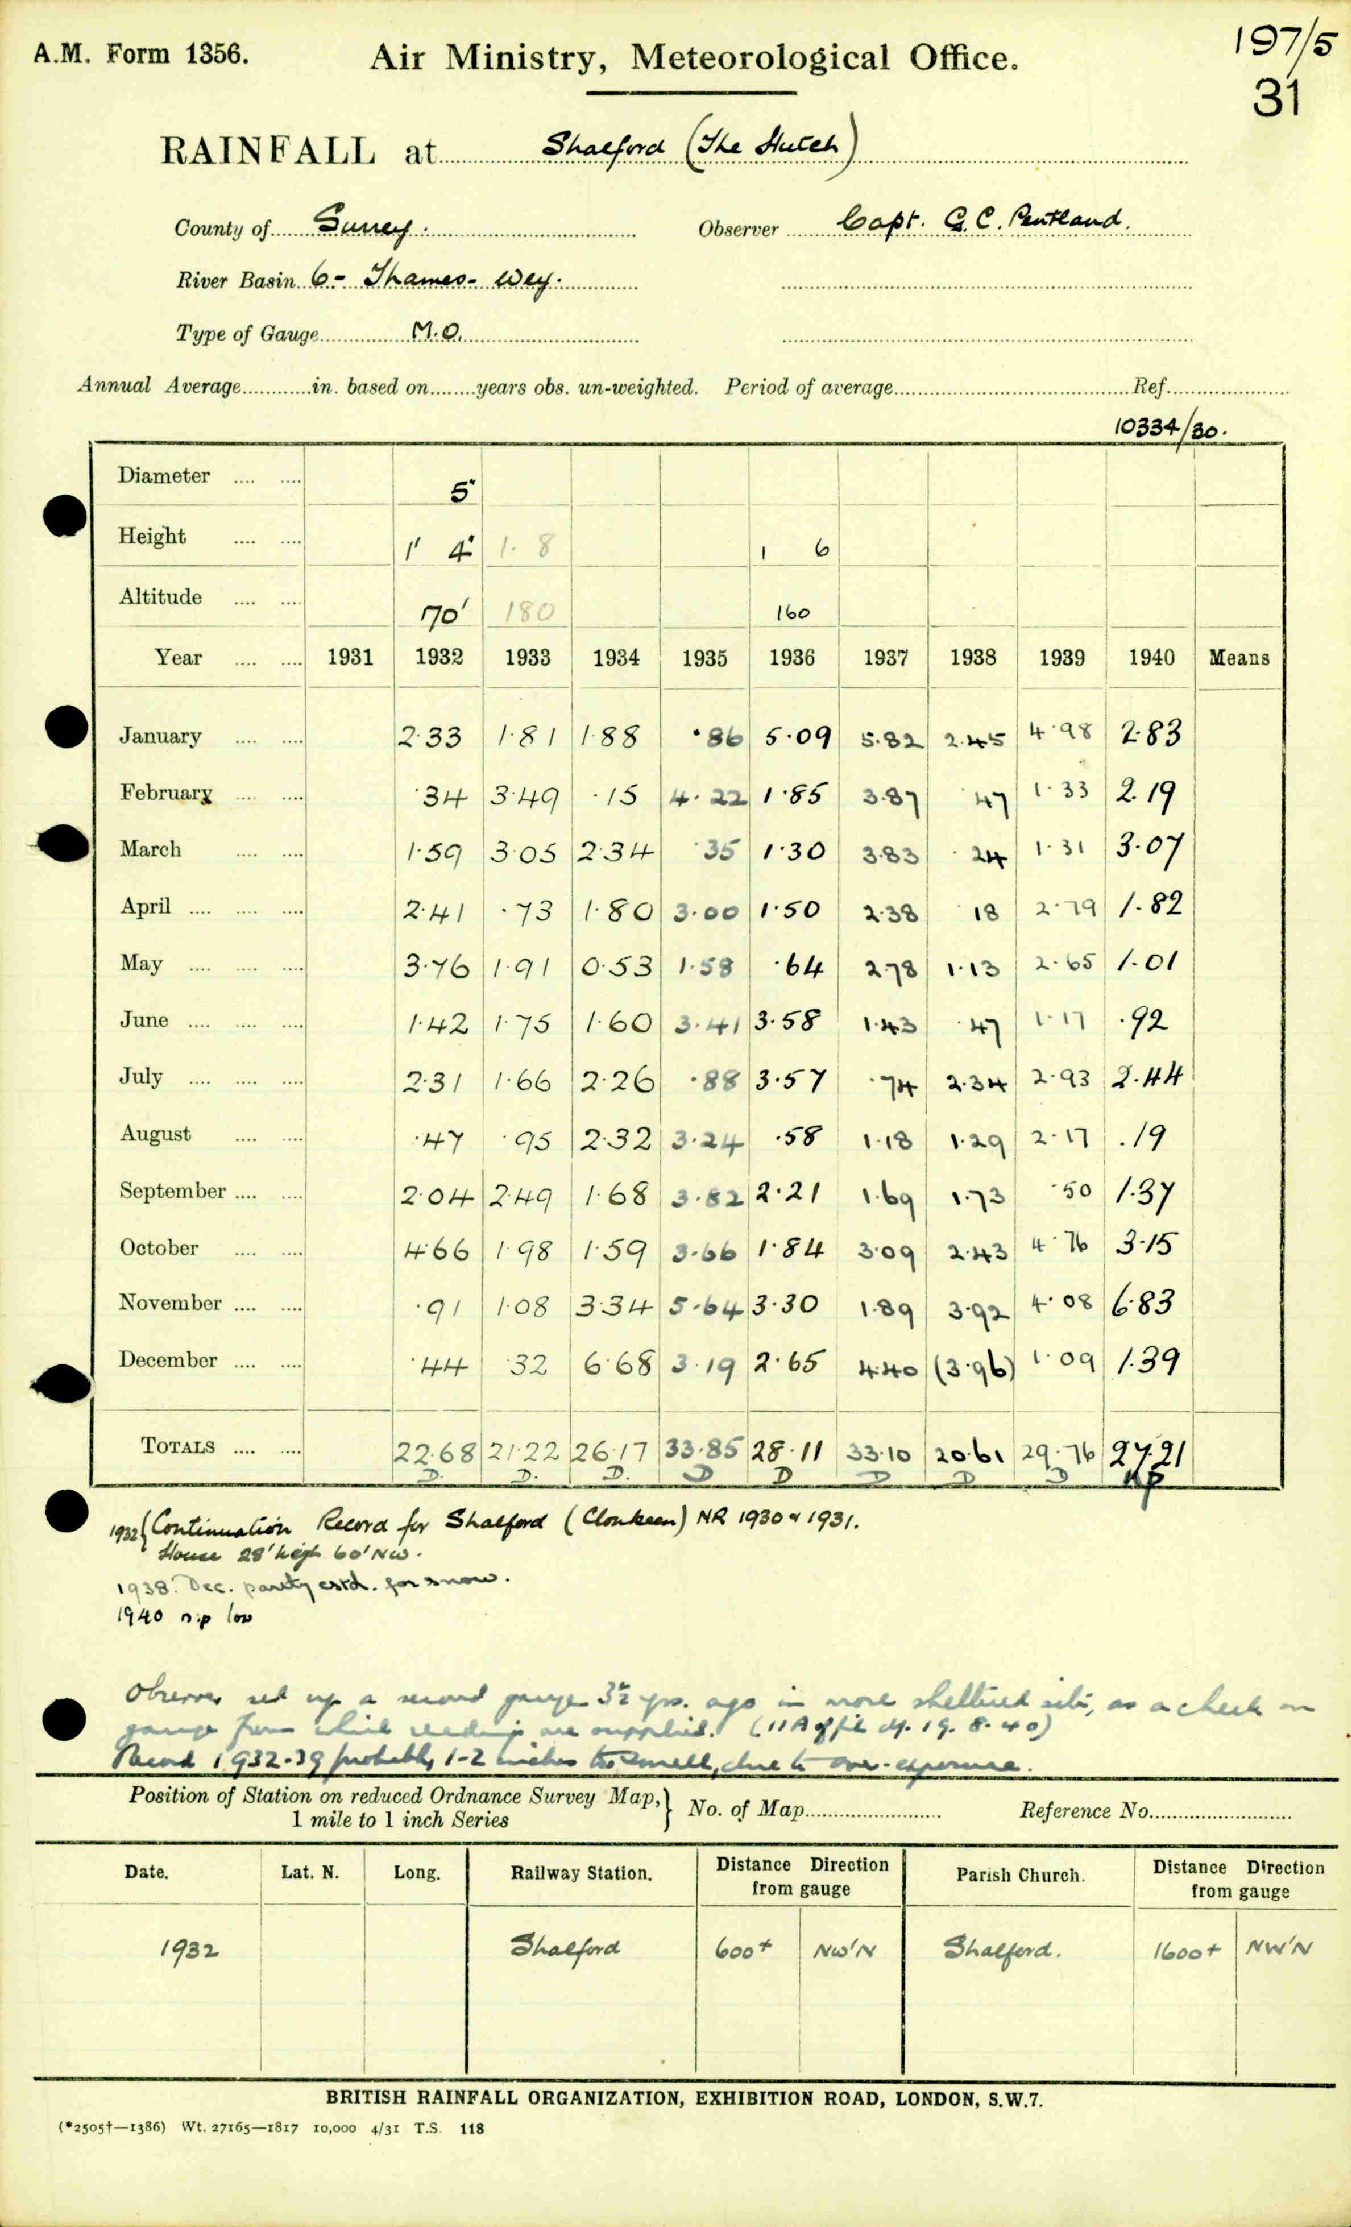 A.M. Form 1356.
Air Ministry, Meteorological Office.
197/5
31
RAINFALL at Shalford (The Hutch)
County of Surrey. Observer Capt. G. C. Pentland.
River Basin 6 - Thames - Wey.
Type of Gauge M.O.
Annual Average in. based on years obs. un-weighted. Period of average Ref.
10334/30.
Diameter 5"
Height 1' 4" 1. 8 1 6
Altitude 70' 180 160
Year 1931 1932 1933 1934 1935 1936 1937 1938 1939 1940 Means
January 2.33 1.81 1.88 .86 5.09 5.82 2.45 4.98 2.83
February .34 3.49 .15 4.22 1.85 3.87 .47 1.33 2.19
March 1.59 3.05 2.34 .35 1.30 3.83 .24 1.31 3.07
April 2.41 .73 1.80 3.00 1.50 2.38 .18 2.79 1.82
May 3.76 1.91 0.53 1.58 .64 2.78 1.13 2.65 1.01
June 1.42 1.75 1.60 3.41 3.58 1.43 .47 1.17 .92
July 2.31 1.66 2.26 .88 3.57 .74 2.34 2.93 2.44
August .47 .95 2.32 3.24 .58 1.18 1.29 2.17 .19
September 2.04 2.49 1.68 3.82 2.21 1.69 1.73 .50 1.37
October 4.66 1.98 1.59 3.66 1.84 3.09 2.43 4.76 3.15
November .91 1.08 3.34 5.64 3.30 1.89 3.92 4.08 6.83
December .44 .32 6.68 3.19 2.65 4.40 (3.96) 1.09 1.39
TOTALS 22.68 21.22 26.17 33.85 28.11 33.10 20.61 29.76 27.21
D. D. D. D D D D D np
1932 { Continuation Record for Shalford (Clonkeen) NR 1930 & 1931.
House 28' high 60' NW.
1938. Dec. partly estd. for snow.
1940 n.p low
Observer set up a second gauge 3½ yrs. ago in more sheltered site, as a check on
gauge from which readings are supplied. (11A of file df. 19. 8. 40)
Record 1932-39 probably 1-2 inches too small, due to over-exposure.
Position of Station on reduced Ordnance Survey Map, } No. of Map Reference No.
1 mile to 1 inch Series
Date. Lat. N. Long. Railway Station. Distance Direction from gauge Parish Church. Distance Direction from gauge
1932 Shalford 600+ NW'N Shalford. 1600+ NW'N
BRITISH RAINFALL ORGANIZATION, EXHIBITION ROAD, LONDON, S.W.7.
(*2505†—1386) Wt. 27165—1817 10,000 4/31 T.S. 118